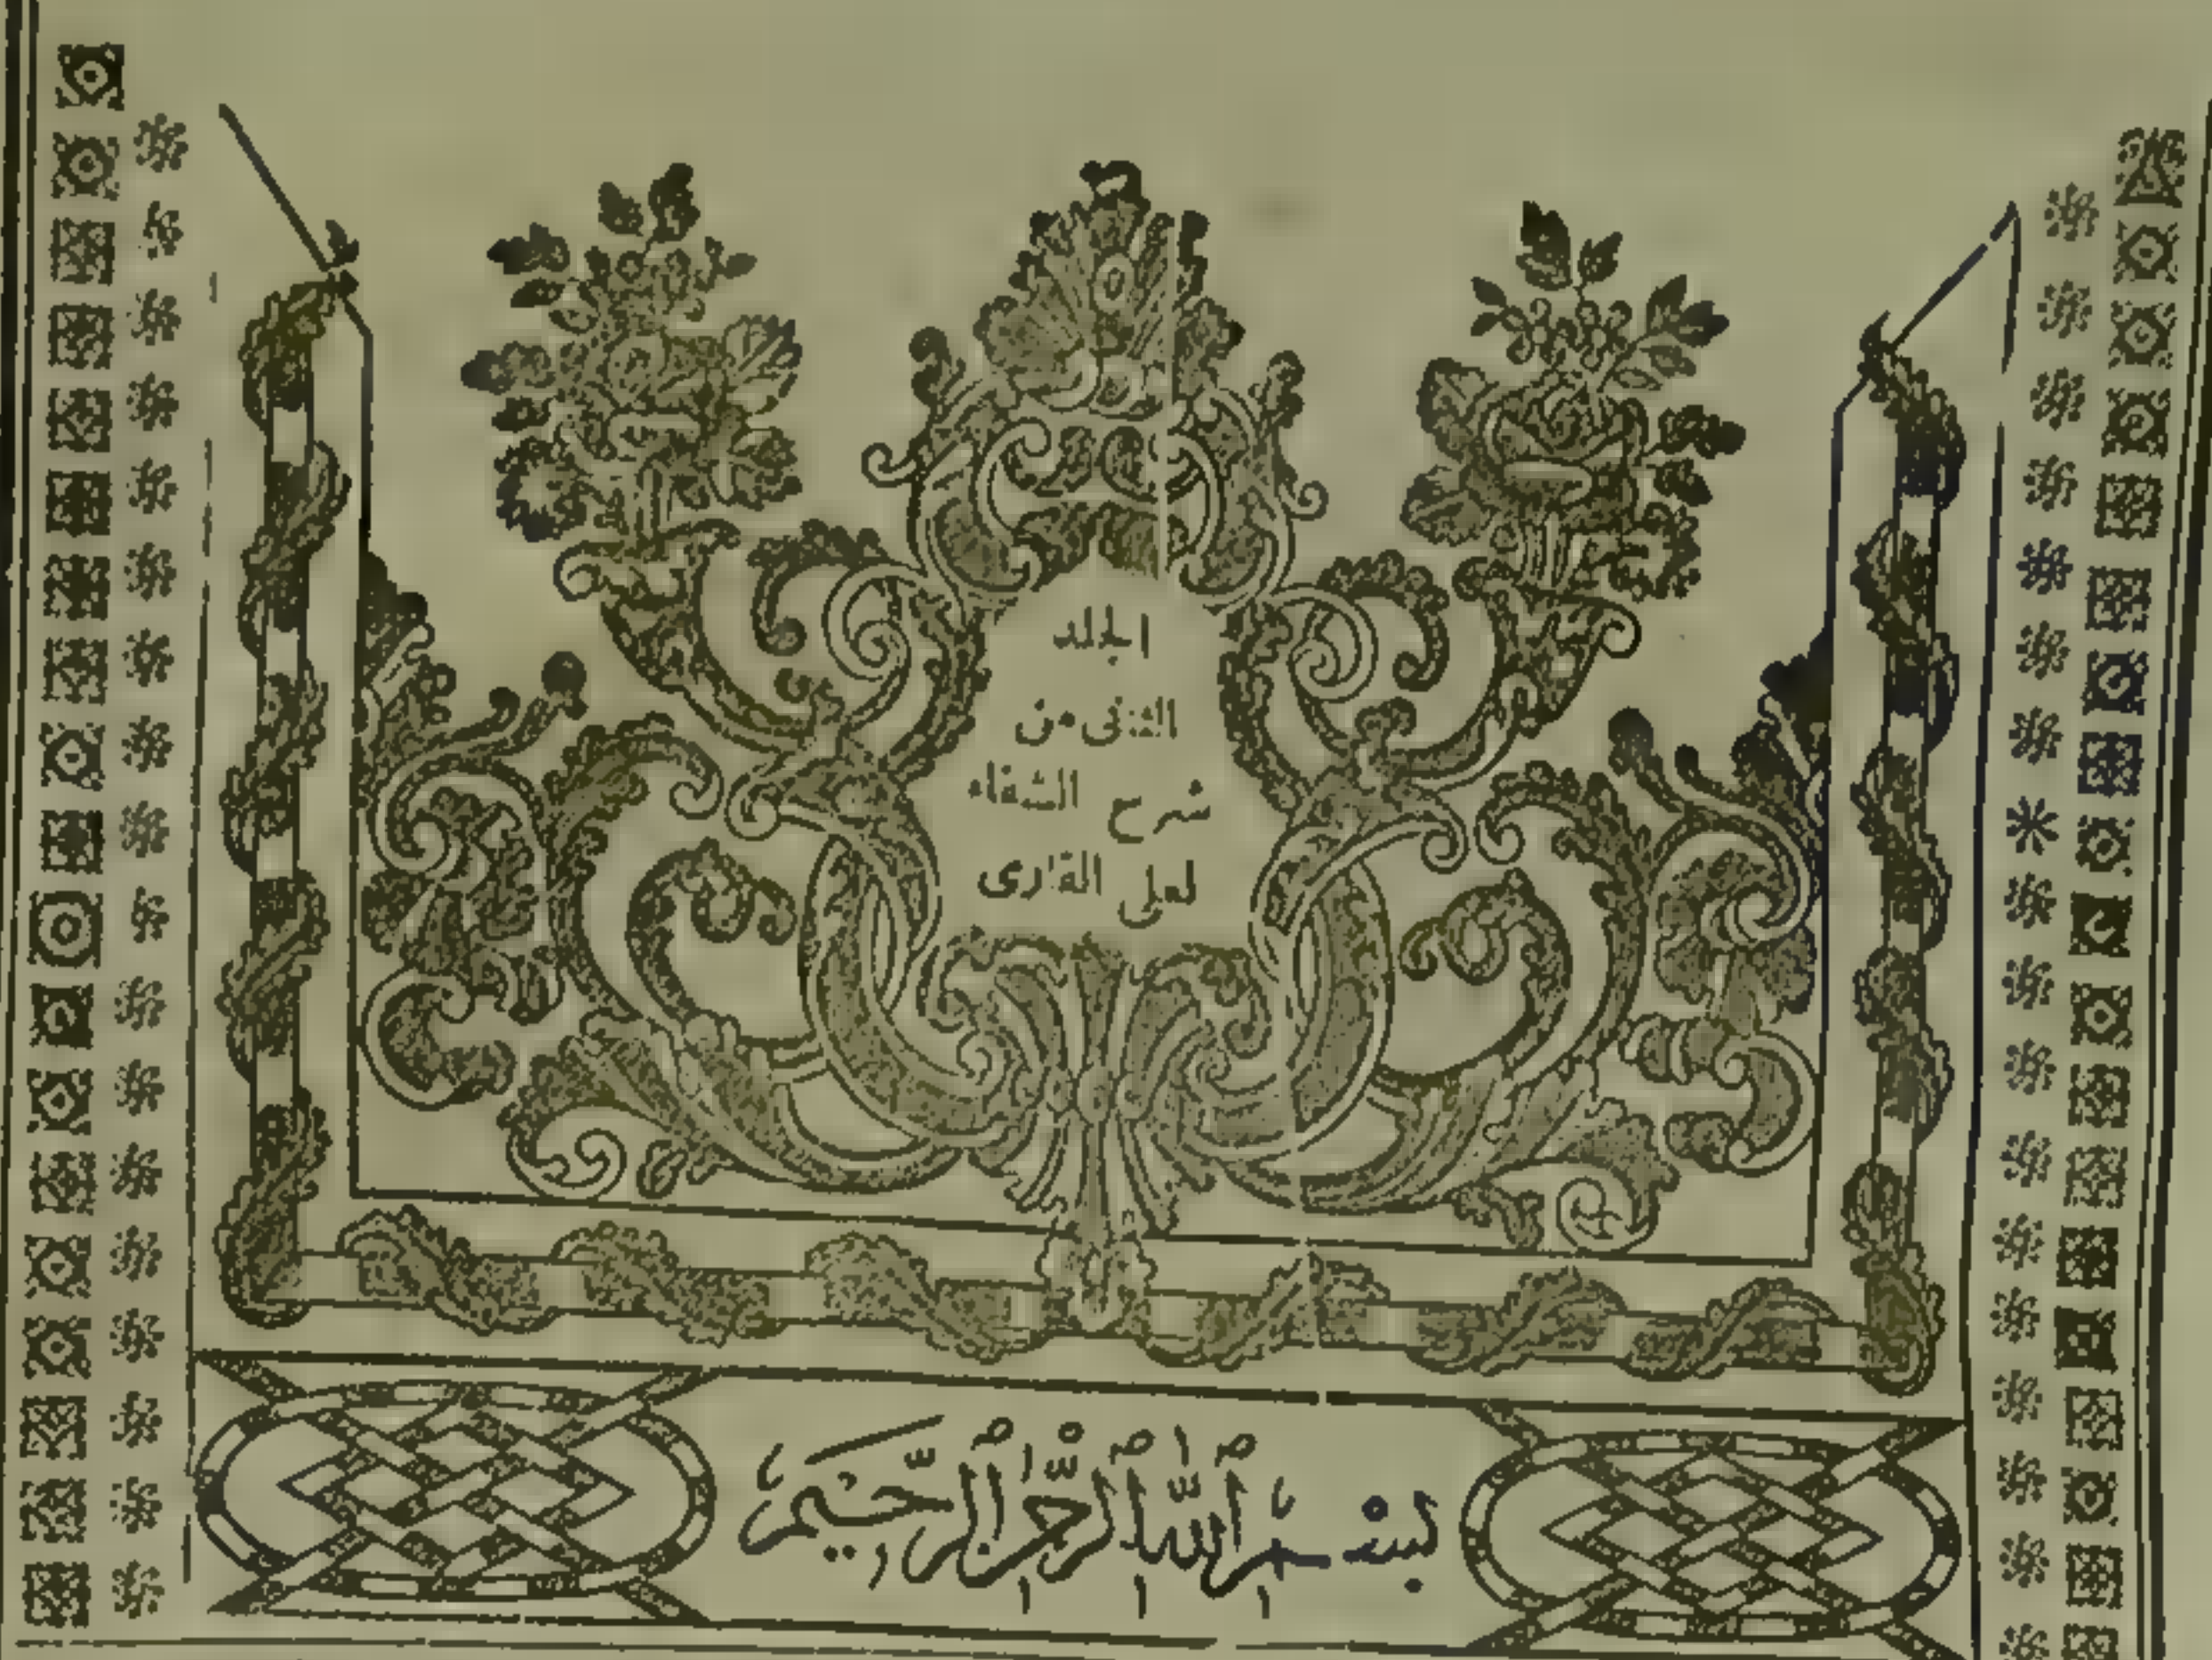 الجلد
الثانى من
شرح الشفاء
لعلى القارى
بسم الله الرحمن الرحيم